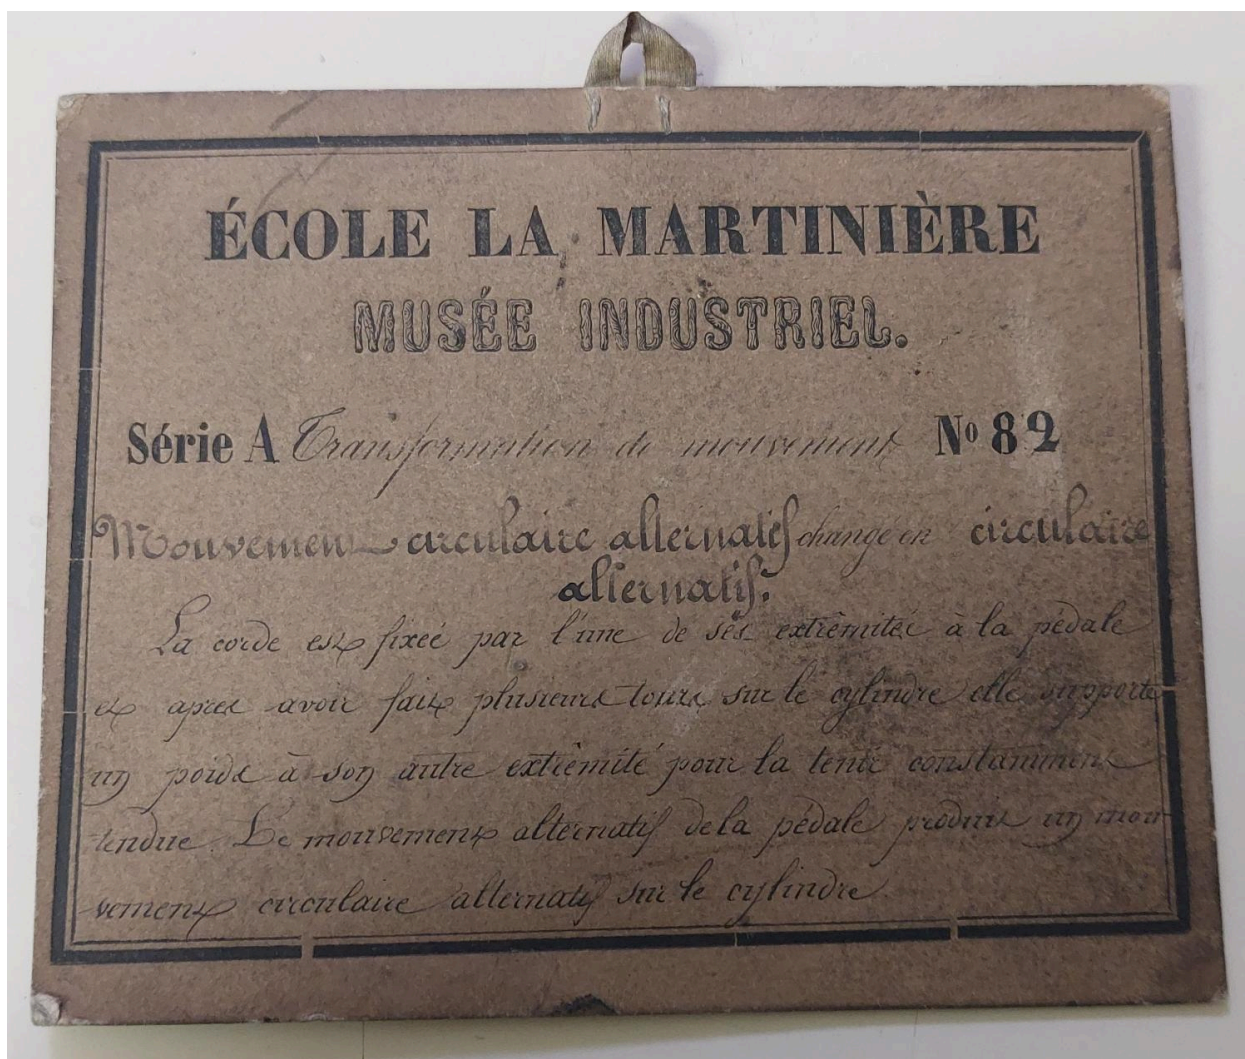 ÉCOLE LA MARTINIÈRE
MUSÉE INDUSTRIEL.
Série A Transformation de mouvement No 82
Mouvement circulaire alternatif changé en circulaire
alternatif.
La corde est fixée par l'une de ses extrêmitée à la pédale
et apres avoir fait plusieurs tours sur le cylindre elle supporte
un poids à son autre extrêmité pour la tenir constamment
tendue. Le mouvement alternatif de la pédale produit un mou-
vement circulaire alternatif sur le cylindre.